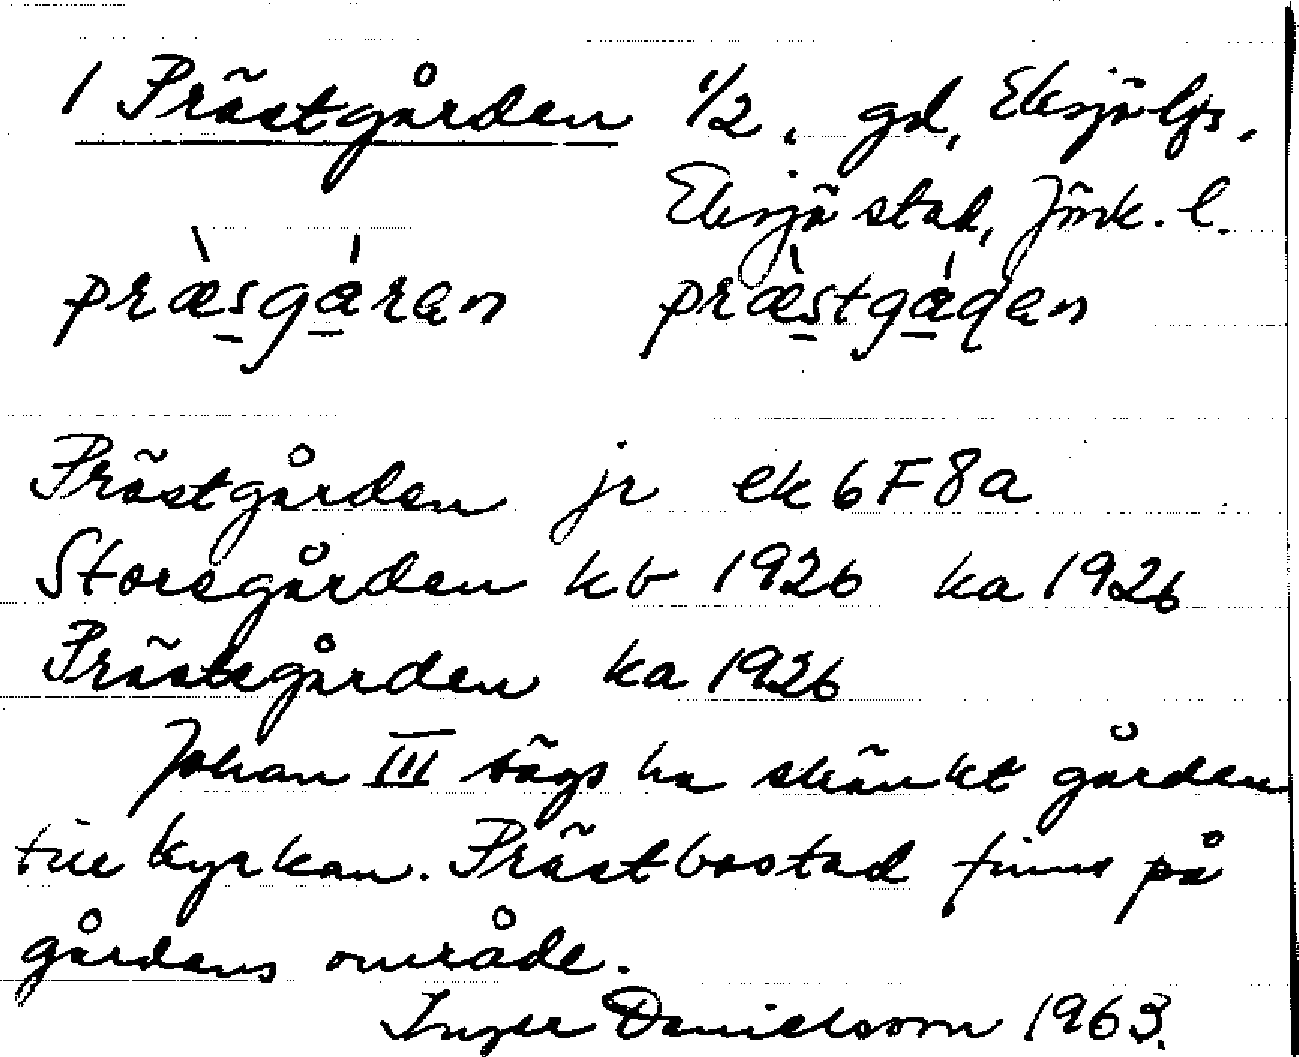 1 Prästgården 1/2, gd, Eksjö lfs.,
Eksjö stad, Jönk. l.
præ̀sgáran præ̀stgáɋan
Prästgården jr ek 6F8a
Storegården kb 1926 ka 1926
Prästegården ka 1926
Johan III sägs ha skänkt gården
till kyrkan. Prästbostad finns på
gårdens område.
Inger Danielsson 1963.